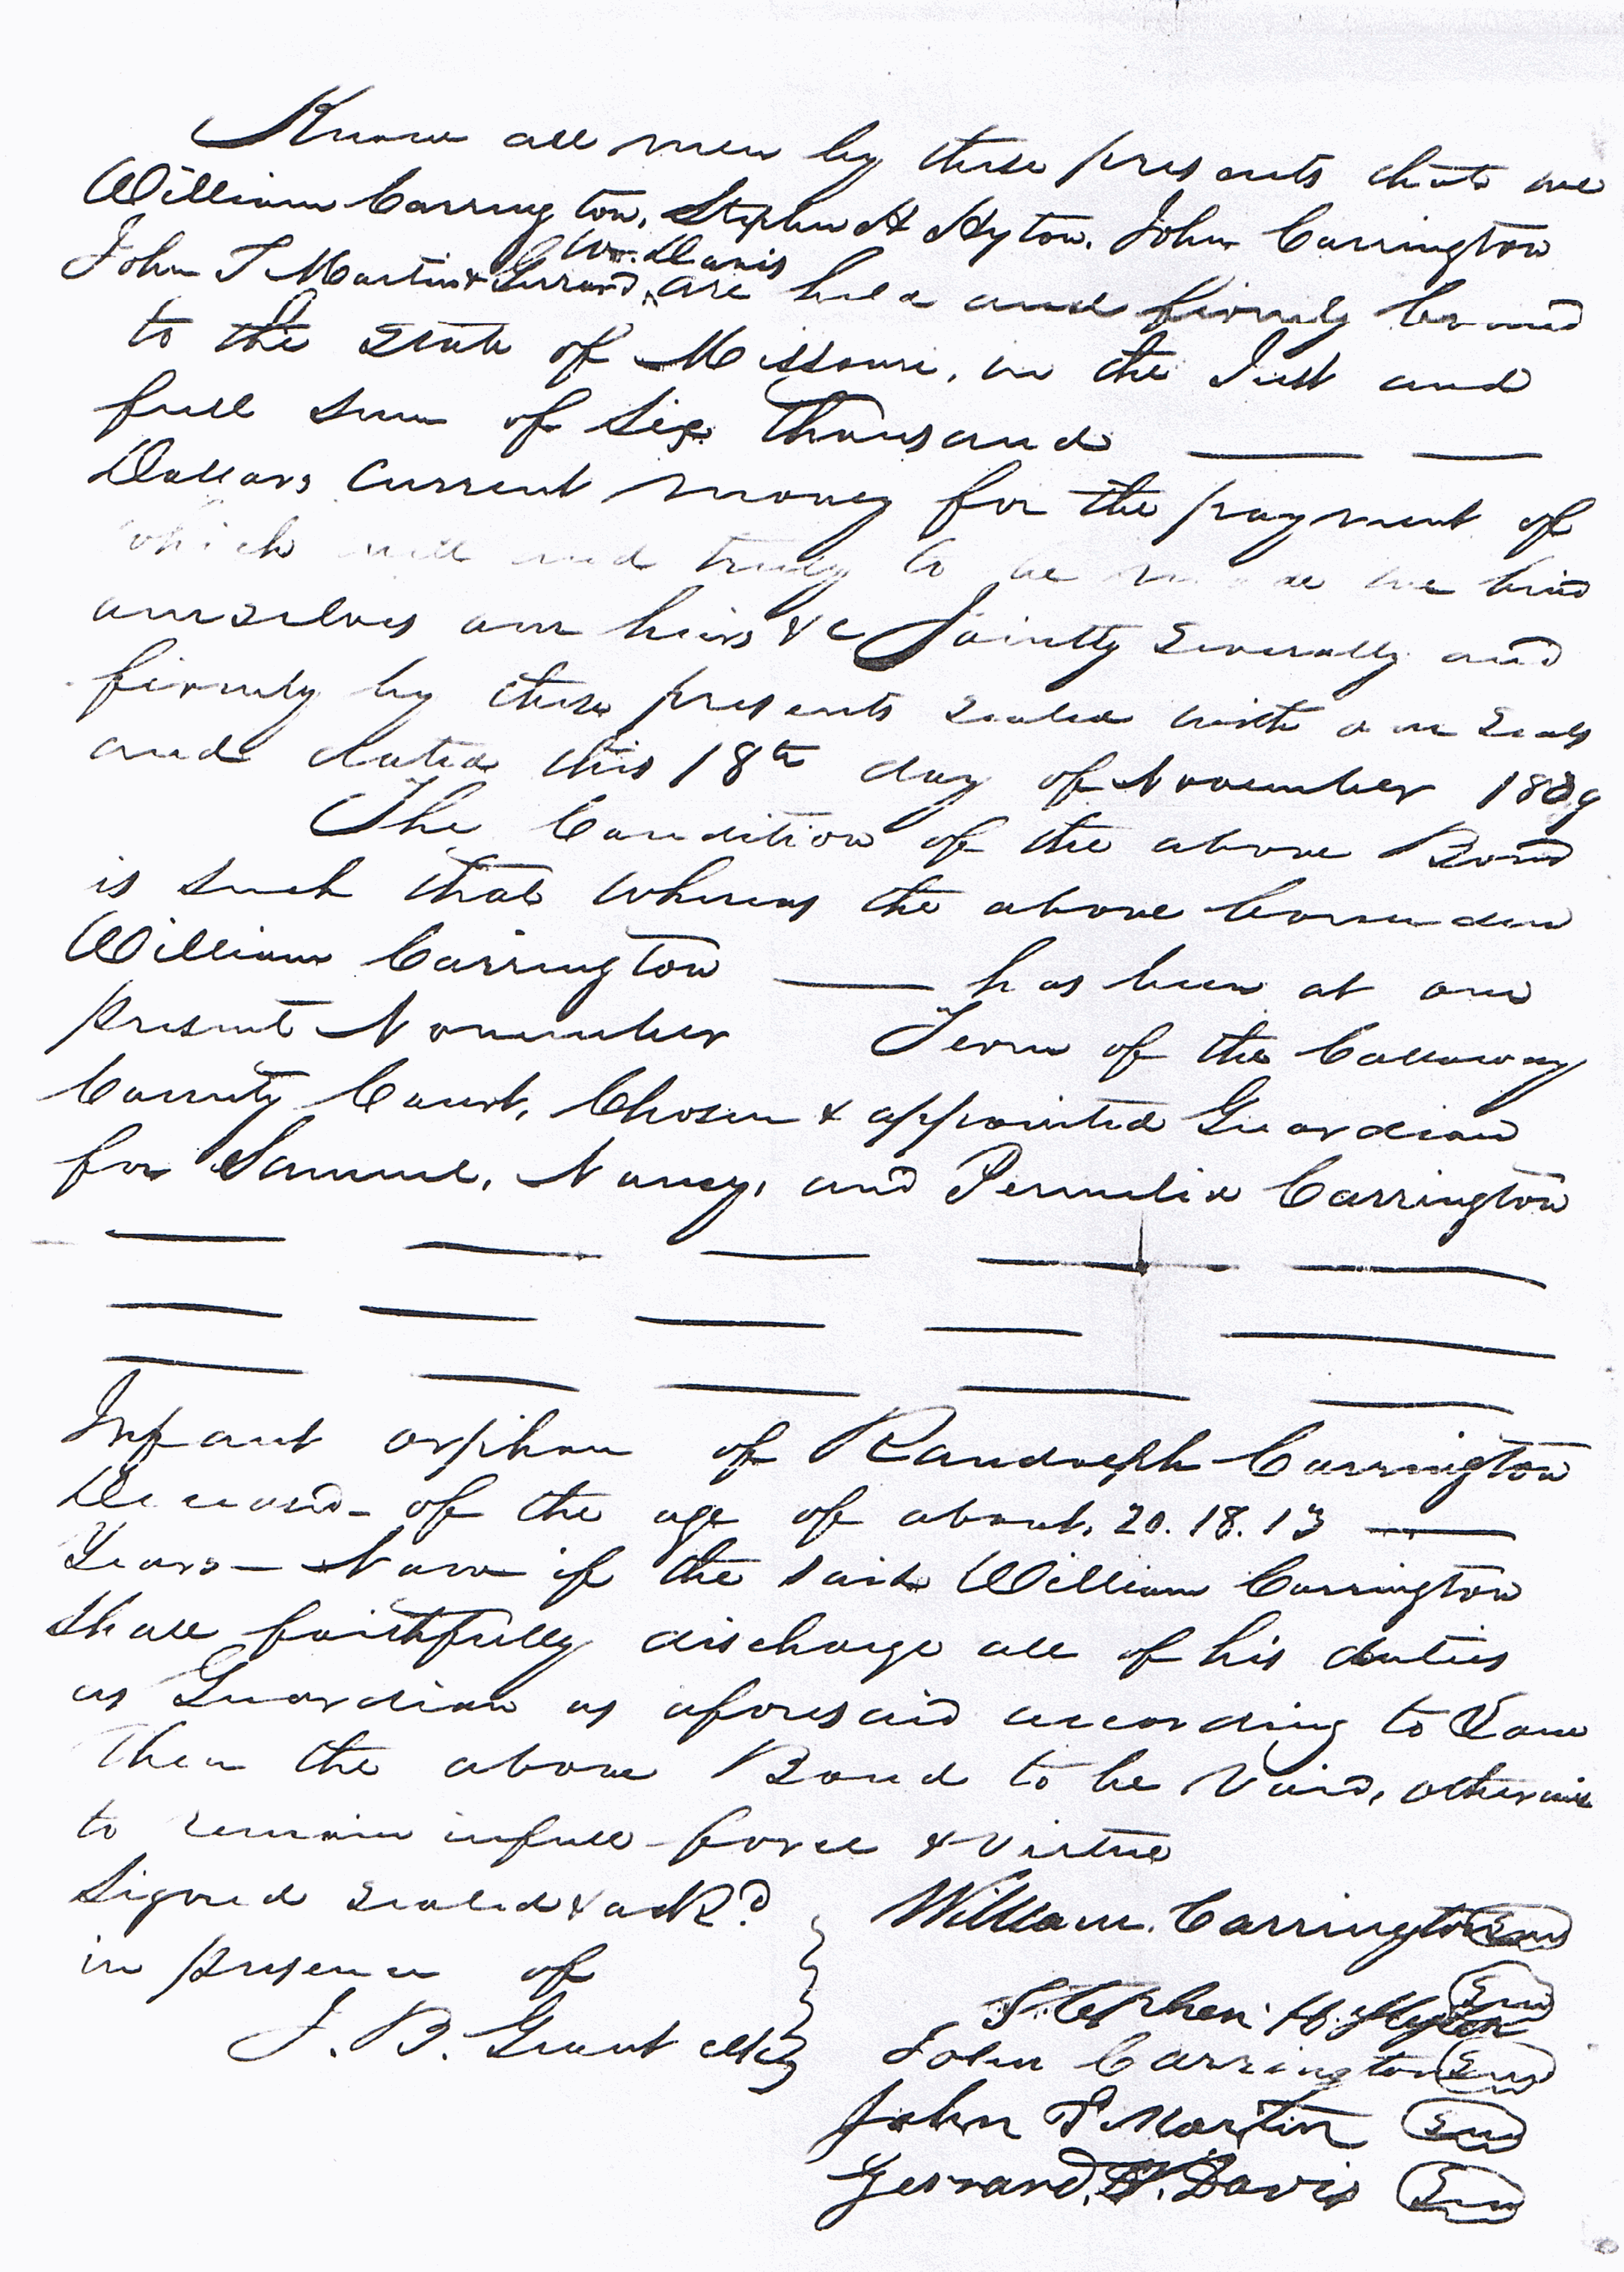 Know all men by these presents that we
William Carrington, Stephen H Hyton, John Carrington
John T Martin & Gerrard Wm. Davis are held and firmly bound
to the State of Missouri, in the Just and
full sum of Six Thousand
Dollars Current money for the payment of
which well and truly to be made we bind
ourselves our heirs &c Jointly Severally and
firmly by these presents sealed with our seals
and dated this 18th day of November
The Condition of the above Bond
is such that whereas the above bounden
William Carrington has been at our
present November Term of the Callaway
County Court, Chosen & appointed Guardian
for Samuel, Nancy, and Permelia Carrington
Infant orphan of Randolph Carrington
Deceased of the age of about, 20. 18. 13
Years - Now if the said William Carrington
shall faithfully discharge all of his duties
as Guardian as aforesaid according to Law
Then the above Bond to be Void, otherwise
to remain in full force & virtue
Signed sealed & ackd
in presence of
William Carrington Seal
Stephen H. Seal
J. B. Grant
John Carrington Seal
John T Martin Seal
Gerrard. W. Davis Seal